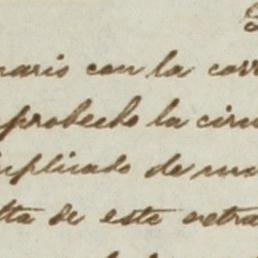 nario con la corr
probecho la circu
uplicado de mo
lta de este retra